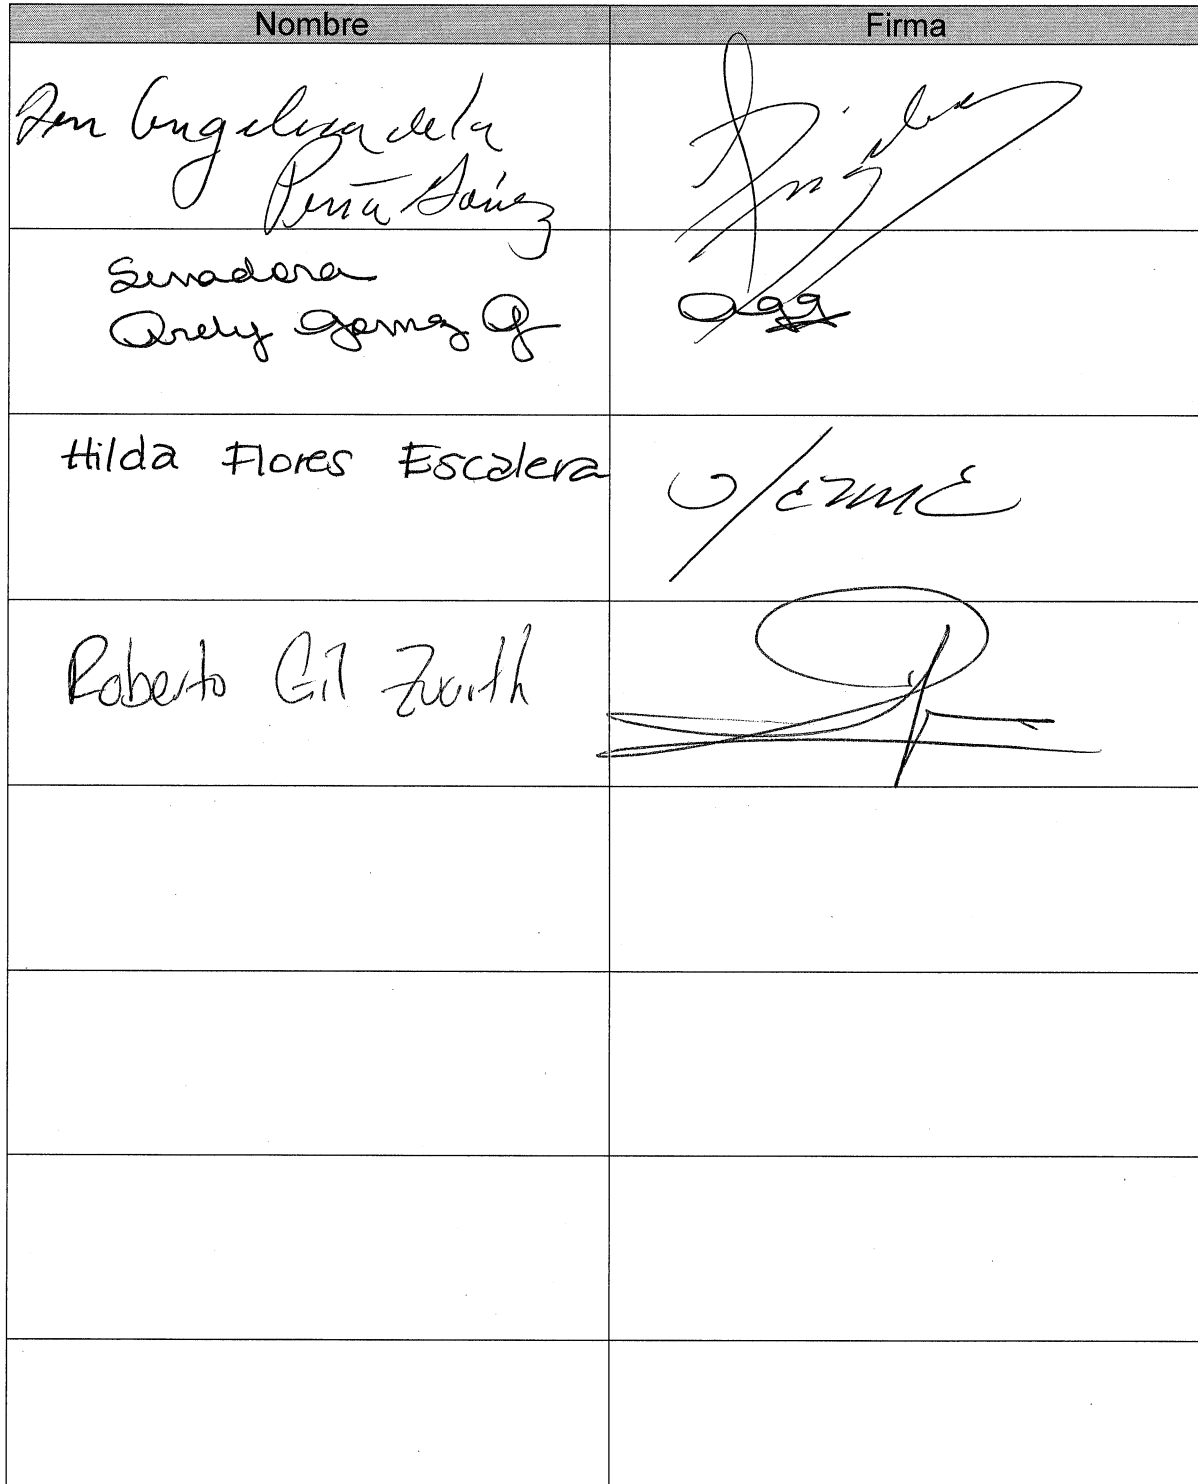 Nombre Firma
Sen Angelica de la
Peña Gómez
Senadora
Arely Gomez G
Hilda Flores Escalera
Roberto Gil Zuarth